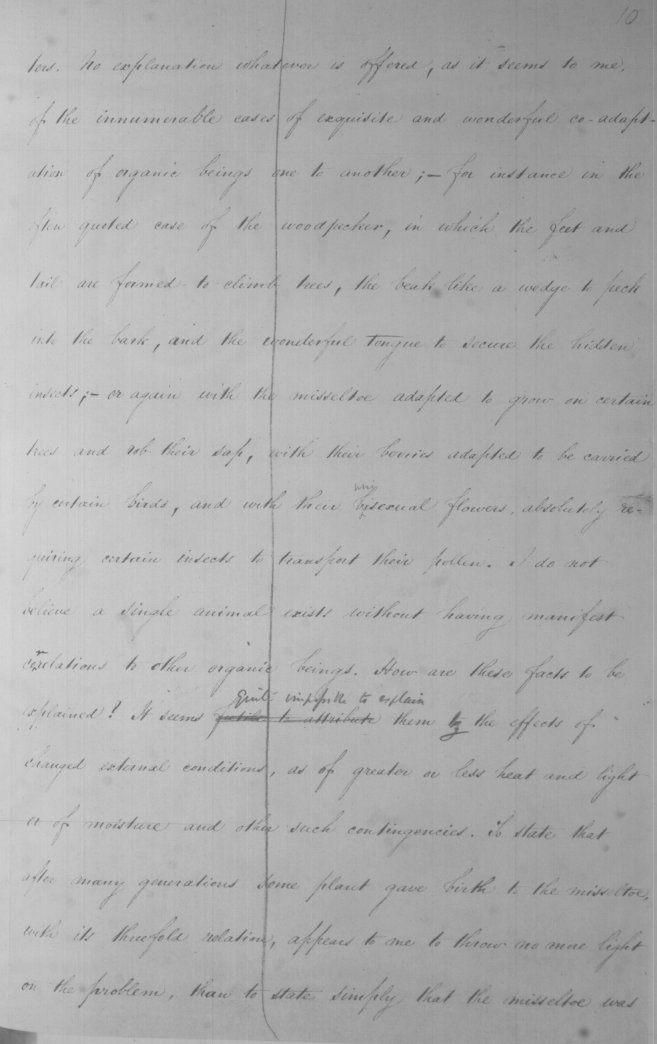 10
tors. No explanation whatever is offered, as it seems to me,
of the innumerable cases of exquisite and wonderful co-adapt-
ation of organic beings one to another; — for instance in the
often quoted case of the woodpecker, in which the feet and
tail are formed to climb trees, the beak like a wedge to peck
into the bark, and the wonderful tongue to secure the hidden
insects; — or again with the misseltoe adapted to grow on certain
trees and rob their sap, with their berries adapted to be carried
uni
by certain birds, and with their bisexual flowers, absolutely re-
quiring certain insects to transport their pollen. I do not
believe a single animal exists without having manifest
correlations to other organic beings. How are these facts to be
Quite impossible to explain
explained? It seems futile to attribute them by the effects of
changed external conditions, as of greater or less heat and light
or of moisture and other such contingencies. To state that
after many generations some plant gave birth to the misseltoe,
with its threefold relation, appears to me to throw no more light
on the problem, than to state simply that the misseltoe was